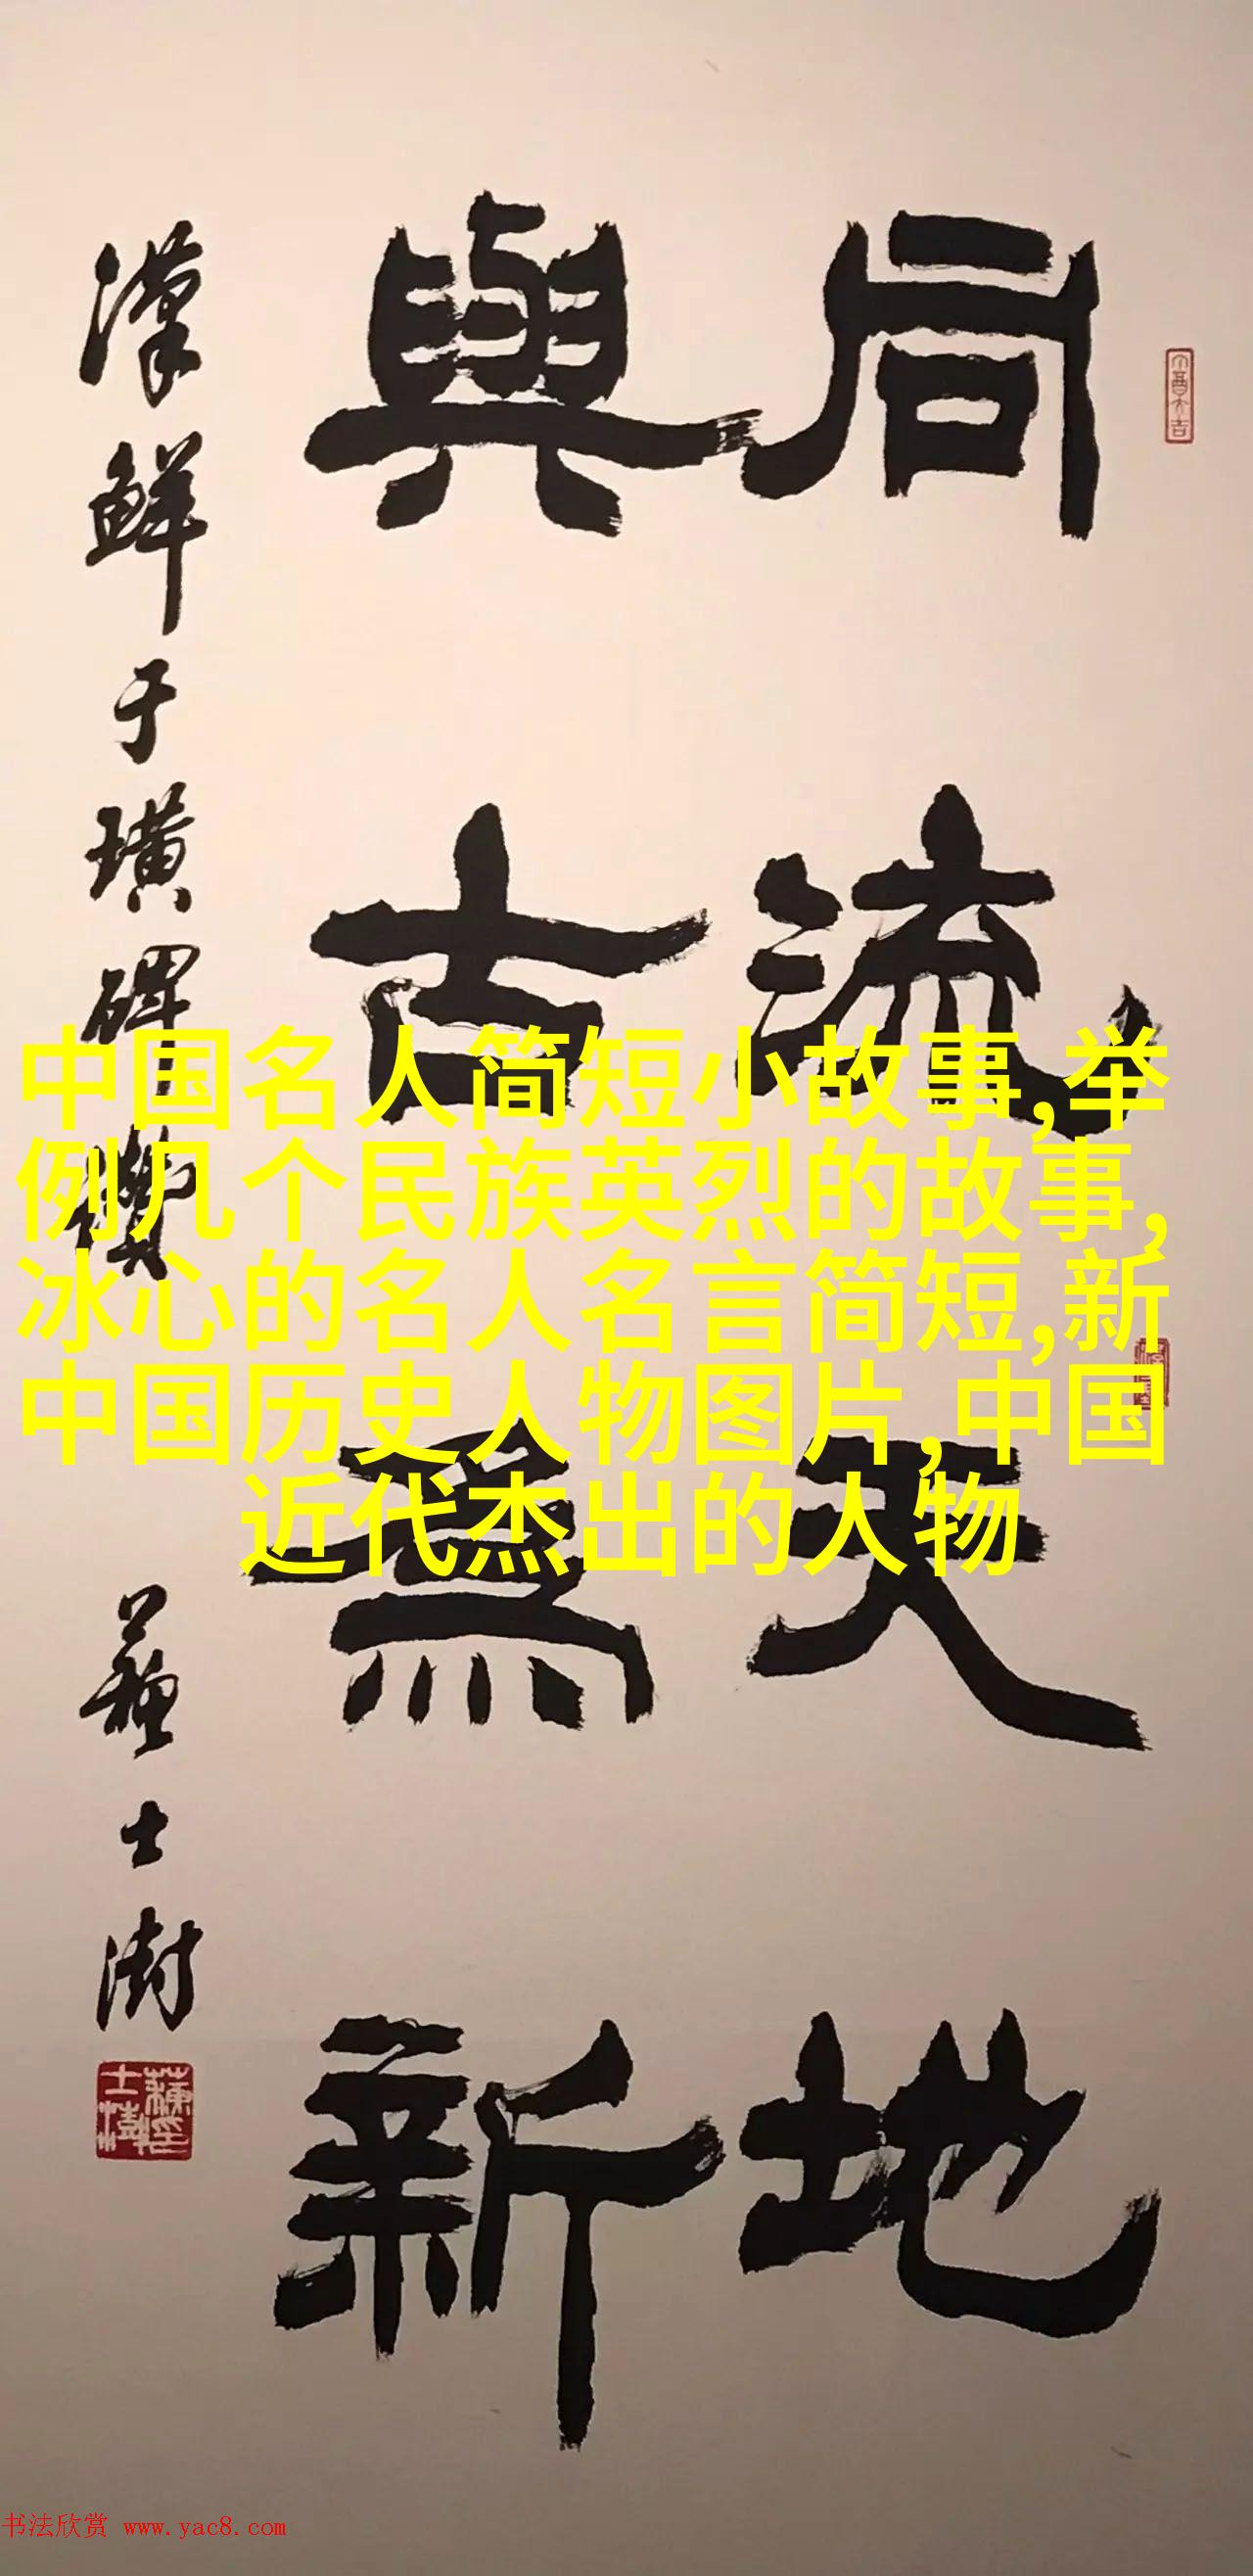 同流天地
與古為新
漢鮮于璜碑讚 蘇士澍
中国名人简短小故事,举
例几个民族英烈的故事,
冰心的名人名言简短,新
中国历史人物图片,中国
近代杰出的人物
书法欣赏 www.yac8.com